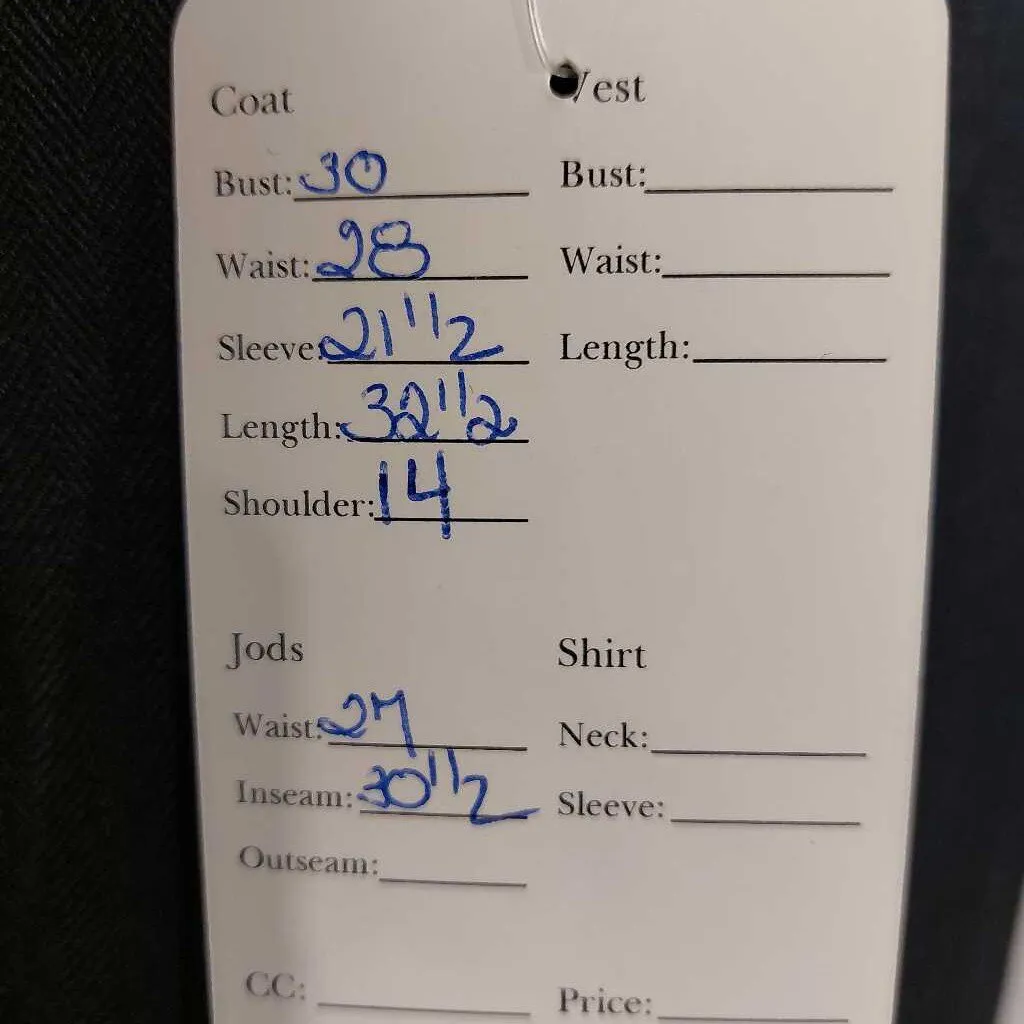 Coat
Bust: 30
Waist: 28
Sleeve: 21 1/2
Length: 32 1/2
Shoulder: 14
Vest
Bust:
Waist:
Length:
Jods
Waist: 27
Inseam: 30 1/2
Outseam:
Shirt
Neck:
Sleeve:
CC:
Price: